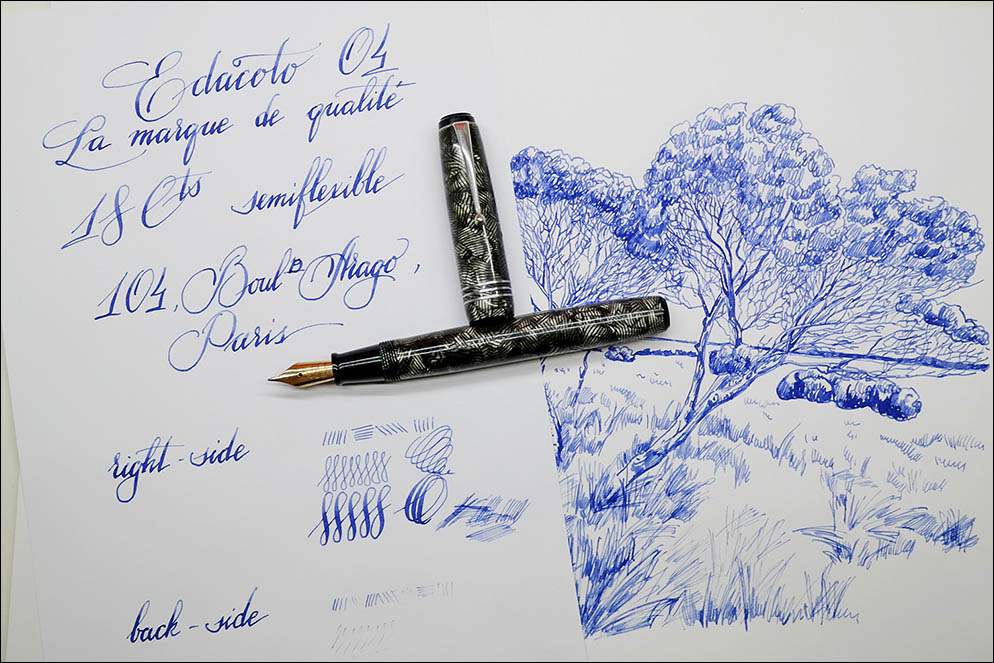 Edacoto 04
La marque de qualité
18 Cts semiflexible
104, Boul^D Arago,
Paris
right-side
back-side